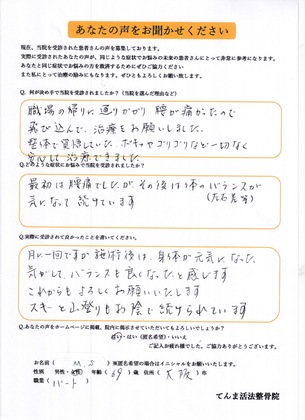 あなたの声をお聞かせください
現在、当院を受診された患者さんの声を募集しております。
実際に受診されたあなたの声が、同じような症状でお悩みの未来の患者さんにとって非常に参考になります。
あなたと同じ症状でお悩みの方を救済するためにぜひご協力ください
また私にとって治療の励みにもなります。ぜひともよろしくお願い致します。
Q. 何が決め手で当院を受診されましたか？(当院を選んだ理由など)
職場の帰りに通りがかり 腰が痛かったので
飛び込んで、治療をお願いしました。
整体で覚悟していた ボキャゴリゴリなど一切なく
安心して治療できました。
Q. どのような症状でお悩みで当院を受診されましたか？
最初は腰痛でしたが、その後は体のバランスが
気になって続けています (左右差等)
Q. 実際に受診されて良かったことを書いてください。
月に一回ですが施術後は、身体が元気になった
気がして、バランスも良くなったと感じます
これからもよろしくお願いいたします
スキーと山登りもお陰で続けられています
Q. あなたの声をホームページに掲載、院内に掲示させていただいてもよろしいでしょうか？
はい・はい(匿名希望)・いいえ
ご記入お疲れ様でした。ご協力ありがとうございます。
お名前( M.S )※匿名希望の場合はイニシャルをお願いします。
性別 男性・女性 年齢(69)歳 住所(大阪)市
職業(パート)
てんま活法整骨院